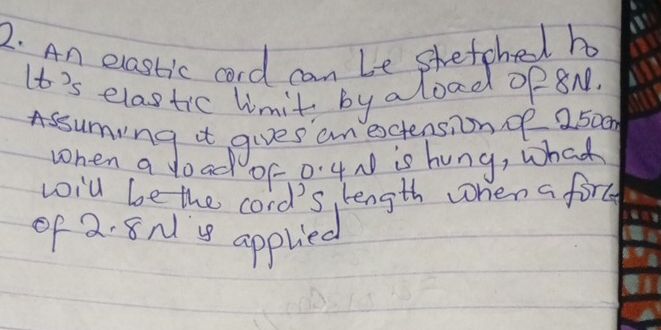 2. An elastic cord can be stretched to
It's elastic limit by a load of 8N.
Assuming it gives an extension of 2.50cm
when a load of 0.4N is hung, what
will be the cord's length when a force
of 2.8N is applied